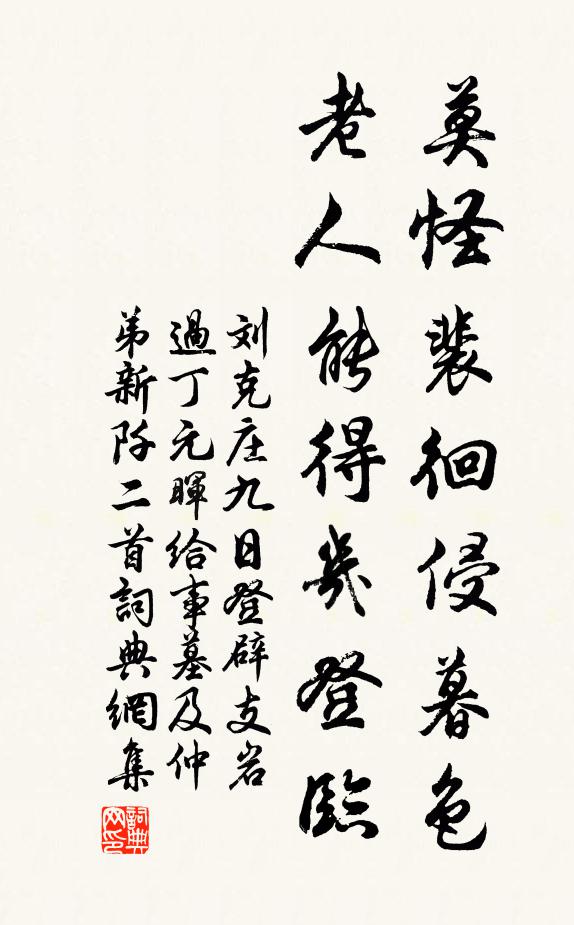 莫怪裴徊侵暮色
老人能得幾登臨
刘克庄九日登辟支岩
過丁元暉给事墓及仲
弟新阡二首詞典網集
詞典网印